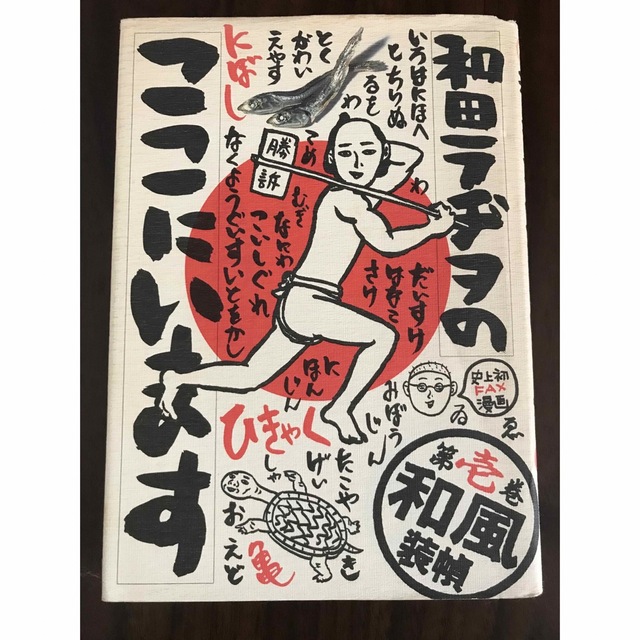 和田ラヂヲの
ここにいます
いろはにほへ
とちりぬ
るを
わ
とく
かわい
えやす
にぼし
勝訴
こめ
むぎ
なにわ
こいしぐれ
なくようぐいすいとをかし
わ
だいすけ
はなこ
さけ
にほん
じん
みぼう
じん
ゐ
ゑ
史上初
FAX
漫画
ひきゃく
げい
しゃ
たこや
き
おえど
亀
第壱巻
和風
装幀